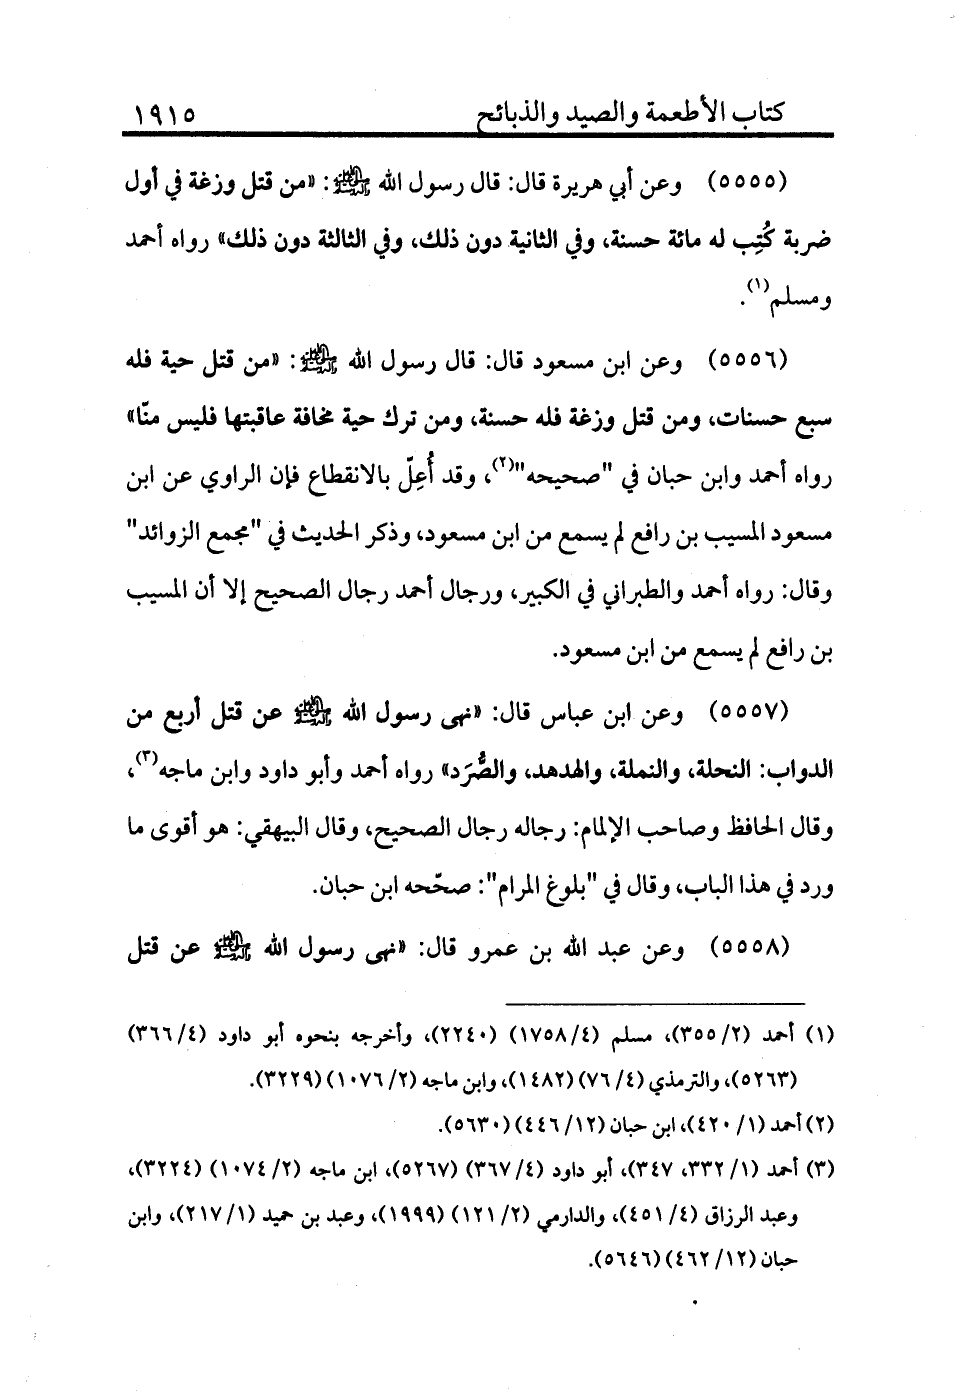 كتاب الأطعمة والصيد والذبائح ١٩١٥
(٥٥٥٥) وعن أبي هريرة قال: قال رسول الله ﷺ: «من قتل وزغة في أول
ضربة كُتِب له مائة حسنة، وفي الثانية دون ذلك، وفي الثالثة دون ذلك» رواه أحمد
ومسلم(١).
(٥٥٥٦) وعن ابن مسعود قال: قال رسول الله ﷺ: «من قتل حية فله
سبع حسنات، ومن قتل وزغة فله حسنة، ومن ترك حية مخافة عاقبتها فليس منّا»
رواه أحمد وابن حبان في "صحيحه"(٢)، وقد أُعِلّ بالانقطاع فإن الراوي عن ابن
مسعود المسيب بن رافع لم يسمع من ابن مسعود، وذكر الحديث في "مجمع الزوائد"
وقال: رواه أحمد والطبراني في الكبير، ورجال أحمد رجال الصحيح إلا أن المسيب
بن رافع لم يسمع من ابن مسعود.
(٥٥٥٧) وعن ابن عباس قال: «نهى رسول الله ﷺ عن قتل أربع من
الدواب: النحلة، والنملة، والهدهد، والصُّرَد» رواه أحمد وأبو داود وابن ماجه(٣)،
وقال الحافظ وصاحب الإلمام: رجاله رجال الصحيح، وقال البيهقي: هو أقوى ما
ورد في هذا الباب، وقال في "بلوغ المرام": صحّحه ابن حبان.
(٥٥٥٨) وعن عبد الله بن عمرو قال: «نهى رسول الله ﷺ عن قتل
(١) أحمد (٢/ ٣٥٥)، مسلم (٤/ ١٧٥٨) (٢٢٤٠)، وأخرجه بنحوه أبو داود (٤/ ٣٦٦)
(٥٢٦٣)، والترمذي (٤/ ٧٦) (١٤٨٢)، وابن ماجه (٢/ ١٠٧٦) (٣٢٢٩).
(٢) أحمد (١/ ٤٢٠)، ابن حبان (١٢/ ٤٤٦) (٥٦٣٠).
(٣) أحمد (١/ ٣٣٢، ٣٤٧)، أبو داود (٤/ ٣٦٧) (٥٢٦٧)، ابن ماجه (٢/ ١٠٧٤) (٣٢٢٤)،
وعبد الرزاق (٤/ ٤٥١)، والدارمي (٢/ ١٢١) (١٩٩٩)، وعبد بن حميد (١/ ٢١٧)، وابن
حبان (١٢/ ٤٦٢) (٥٦٤٦).